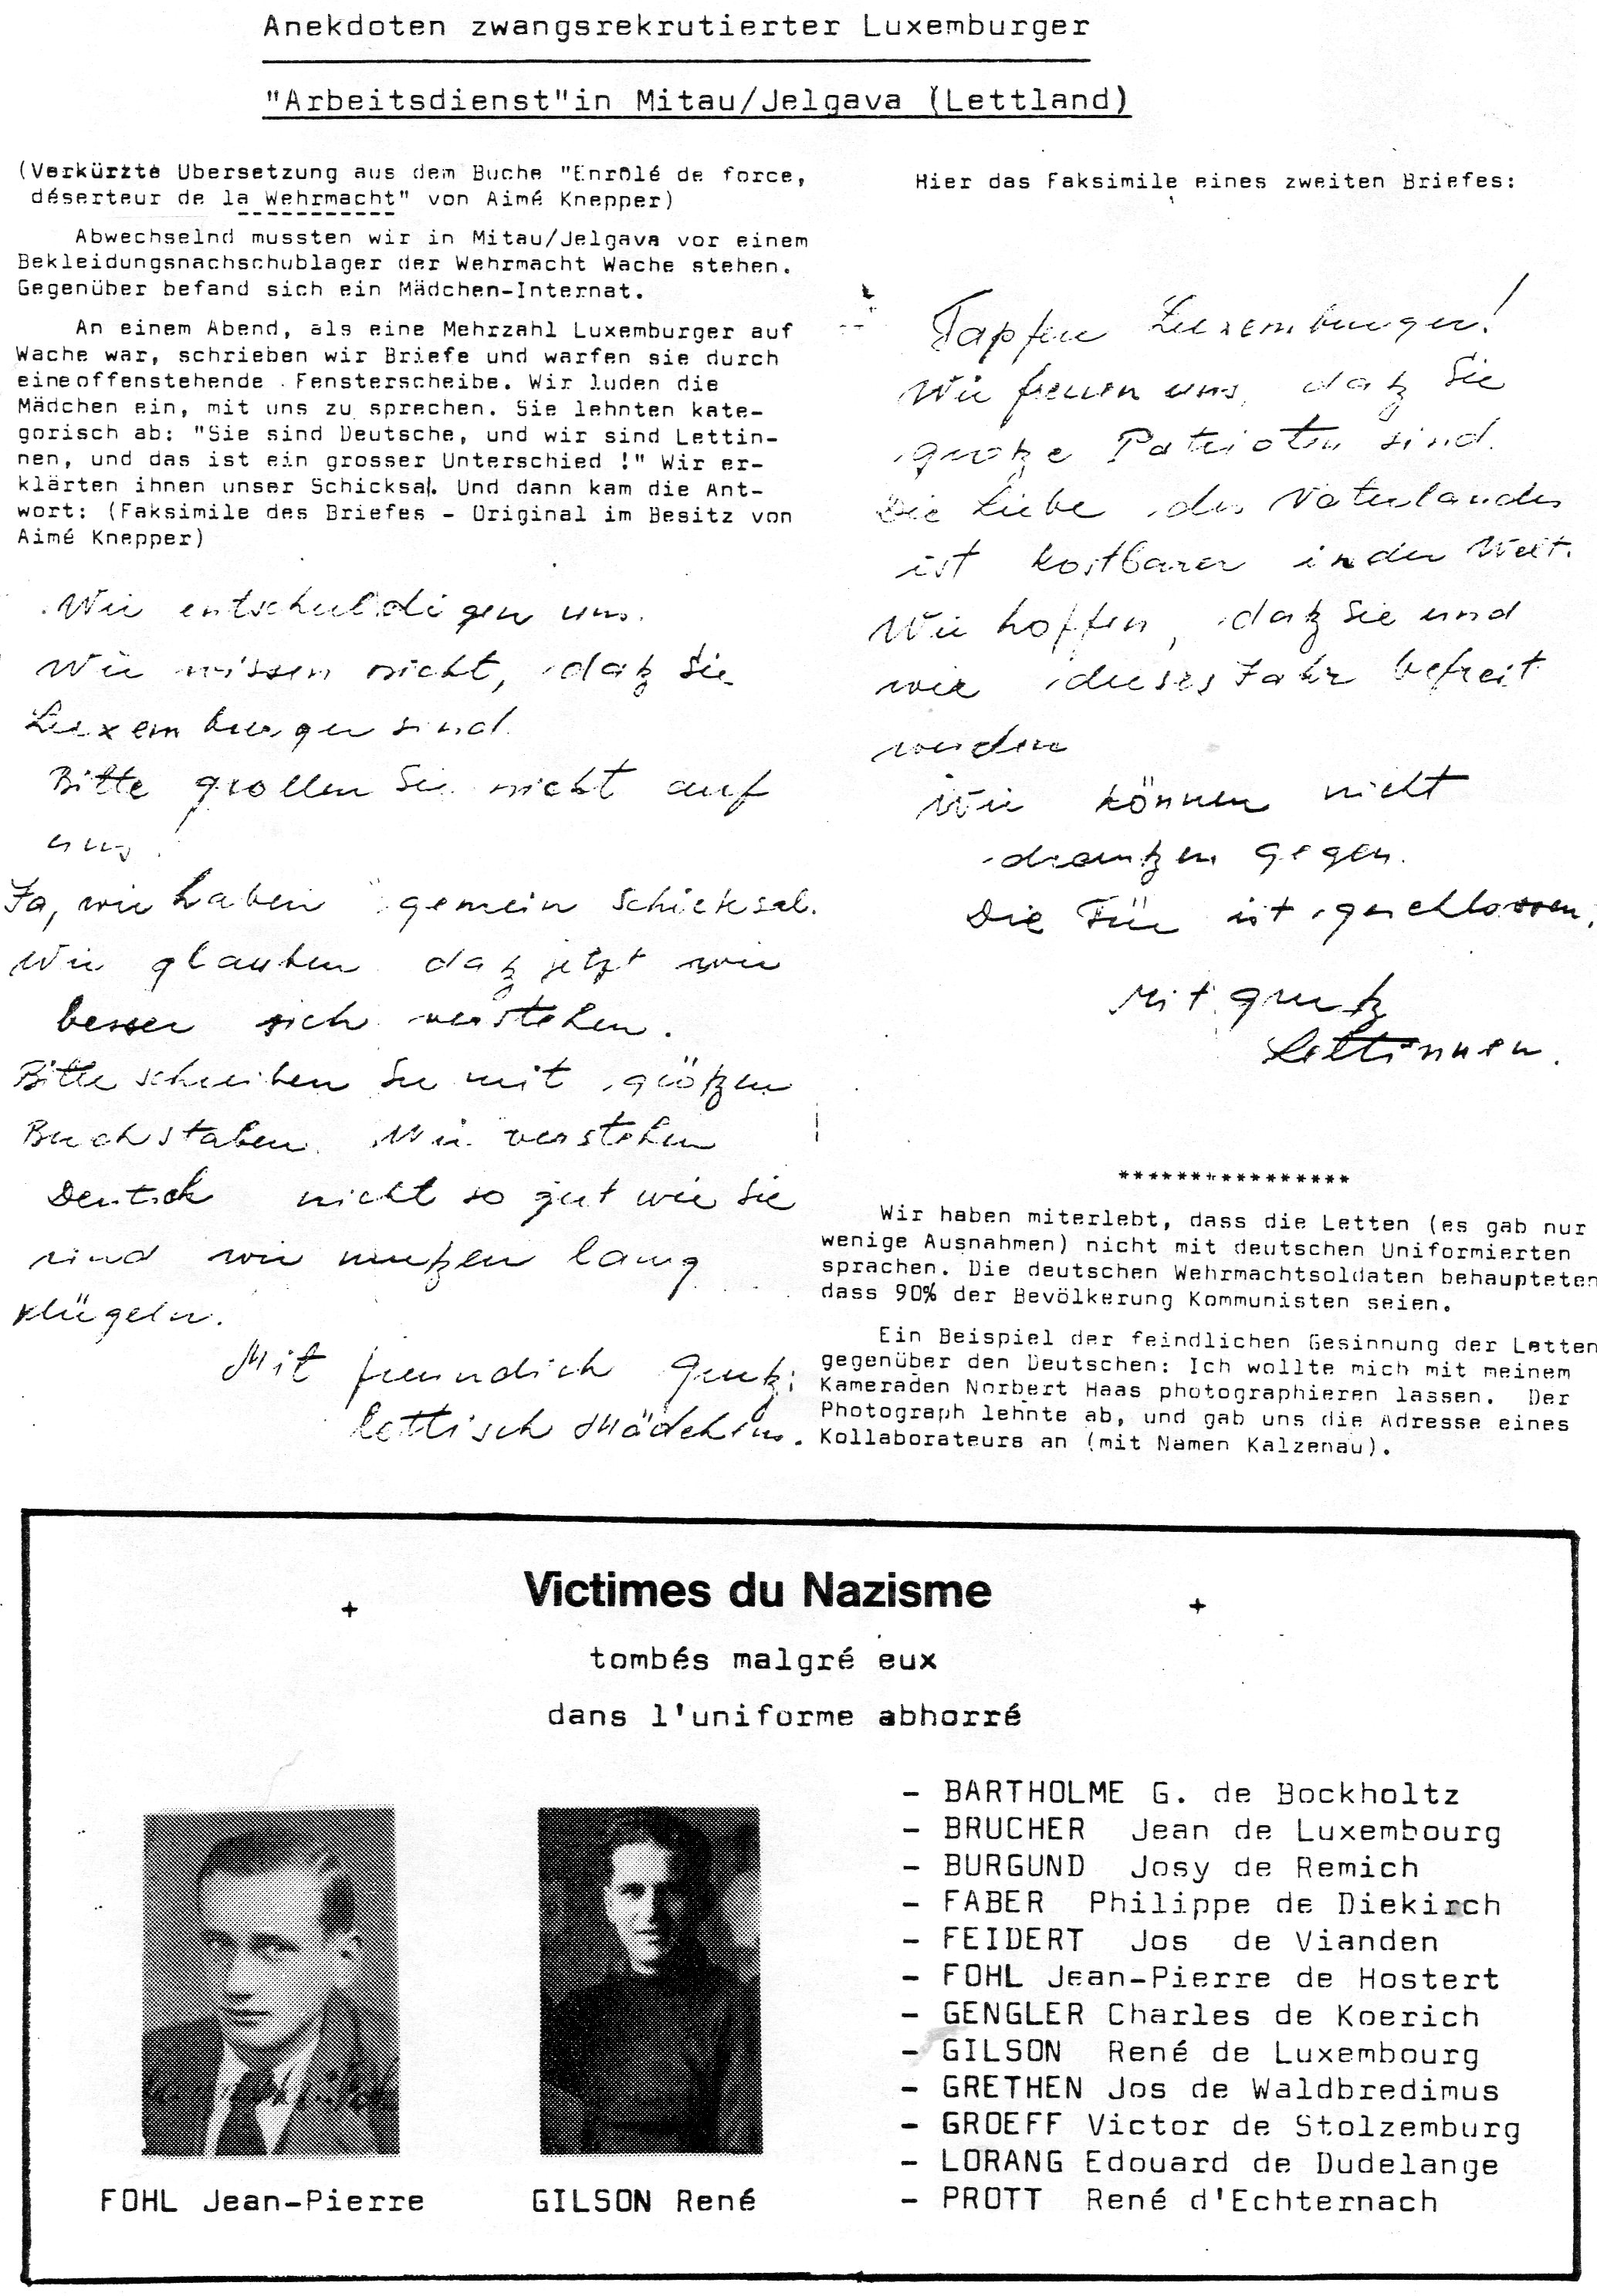 Anekdoten zwangsrekrutierter Luxemburger
"Arbeitsdienst"in Mitau/Jelgava (Lettland)
(Verkürzte Ubersetzung aus dem Buche "Enrôlé de force,
déserteur de la Wehrmacht" von Aimé Knepper)
Abwechselnd mussten wir in Mitau/Jelgava vor einem
Bekleidungsnachschublager der Wehrmacht Wache stehen.
Gegenüber befand sich ein Mädchen-Internat.
An einem Abend, als eine Mehrzahl Luxemburger auf
Wache war, schrieben wir Briefe und warfen sie durch
eine offenstehende Fensterscheibe. Wir luden die
Mädchen ein, mit uns zu sprechen. Sie lehnten kate-
gorisch ab: "Sie sind Deutsche, und wir sind Lettin-
nen, und das ist ein grosser Unterschied !" Wir er-
klärten ihnen unser Schicksal. Und dann kam die Ant-
wort: (Faksimile des Briefes - Original im Besitz von
Aimé Knepper)
Wir entschuldigen uns.
Wir wissen nicht, daß Sie
Luxemburger sind.
Bitte grollen Sie nicht auf
uns!
Ja, wir haben gemein Schicksal.
Wir glauben daß jetzt wir
besser sich verstehen.
Bitte schreiben Sie mit größen
Buchstaben. Wir verstehen
Deutsch nicht so gut wie Sie
sind wir mußen lang
klügeln.
Mit freundich Gruß;
lettisch Mädchens.
Hier das Faksimile eines zweiten Briefes:
Tapfere Luxemburger!
Wir freuen uns, daß Sie
große Patrioten sind.
Die Liebe des Vaterlandes
ist kostbarer in der Welt.
Wir hoffen, daß Sie und
wir dieses Jahr befreit
werden
Wir können nicht
draußen gegen.
Die Tür ist geschlossen.
Mit gruß
Lettinnen.
****************
Wir haben miterlebt, dass die Letten (es gab nur
wenige Ausnahmen) nicht mit deutschen Uniformierten
sprachen. Die deutschen Wehrmachtsoldaten behaupteten
dass 90% der Bevölkerung Kommunisten seien.
Ein Beispiel der feindlichen Gesinnung der Letten
gegenüber den Deutschen: Ich wollte mich mit meinem
Kameraden Norbert Haas photographieren lassen. Der
Photograph lehnte ab, und gab uns die Adresse eines
Kollaborateurs an (mit Namen Kalzenau).
+ Victimes du Nazisme +
tombés malgré eux
dans l'uniforme abhorré
- BARTHOLME G. de Bockholtz
- BRUCHER Jean de Luxembourg
- BURGUND Josy de Remich
- FABER Philippe de Diekirch
- FEIDERT Jos de Vianden
- FOHL Jean-Pierre de Hostert
- GENGLER Charles de Koerich
- GILSON René de Luxembourg
- GRETHEN Jos de Waldbredimus
- GROEFF Victor de Stolzemburg
- LORANG Edouard de Dudelange
- PROTT René d'Echternach
FOHL Jean-Pierre
GILSON René